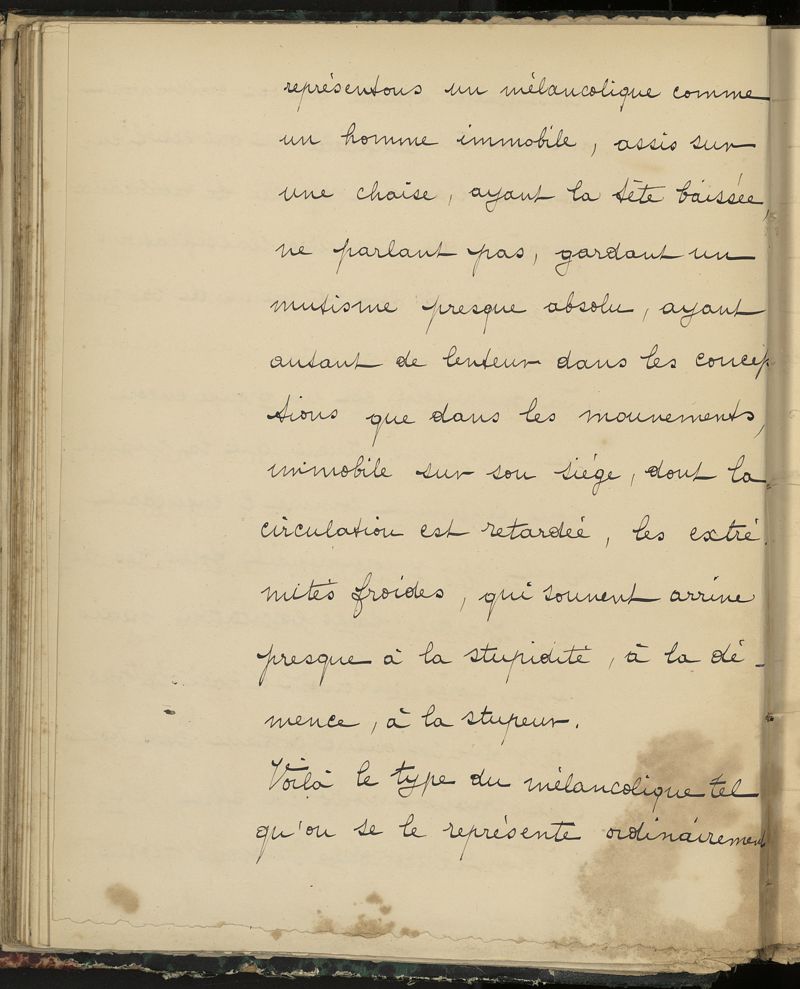 représentons un mélancolique comme
un homme immobile, assis sur
une chaise, ayant la tête baissée,
ne parlant pas, gardant un
mutisme presque absolu, ayant
autant de lenteur dans les concep
tions que dans les mouvements,
immobile sur son siége, dont la
circulation est retardée, les extré-
mités froides, qui souvent arrive
presque à la stupidité, à la dé-
mence, à la stupeur.
Voilà le type du mélancolique tel
qu'on se le représente ordinairement